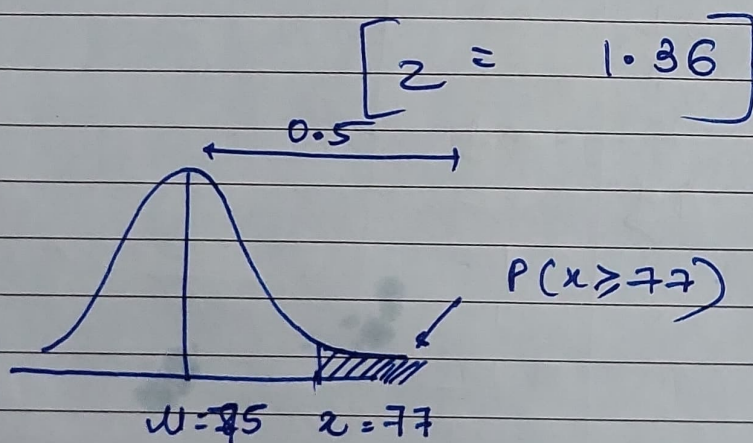 [z = 1.36]
0.5
P(x ≥ 77)
μ = 75 x = 77